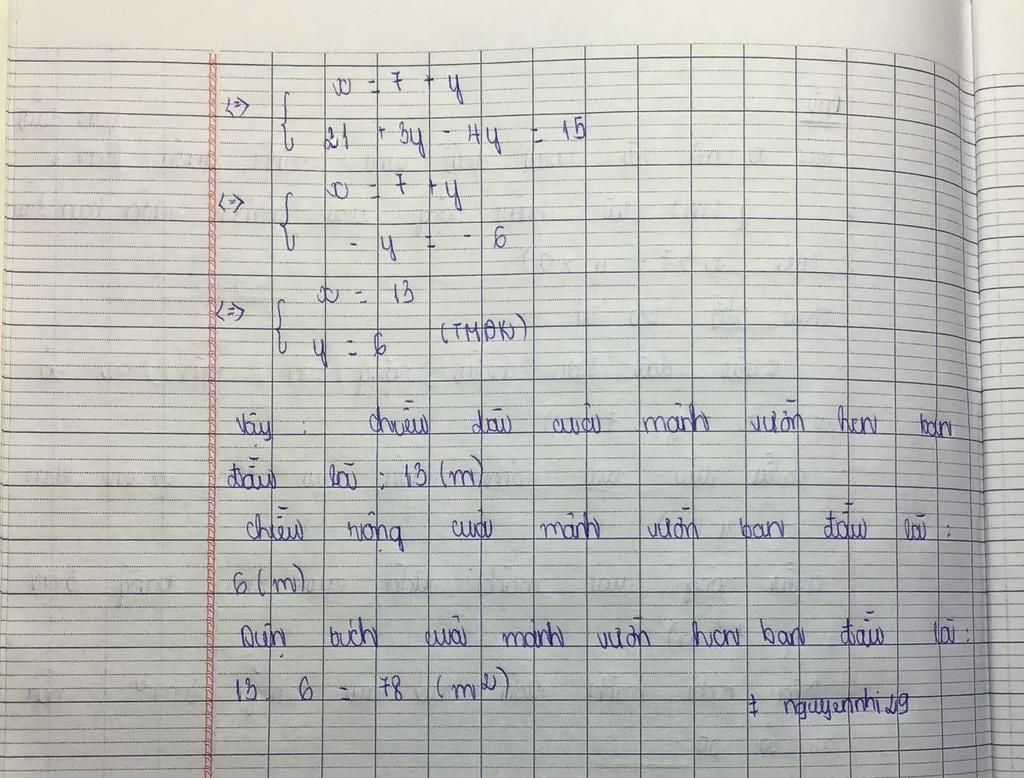 <=> { x = 7 + y
21 + 3y - 4y = 15
<=> { x = 7 + y
- y = - 6
<=> { x = 13
y = 6 (TMĐK)
Vậy : chiều dài của mảnh vườn hcn ban
đầu là : 13 (m)
chiều rộng của mảnh vườn ban đầu là :
6 (m)
Diện tích của mảnh vườn hcn ban đầu là :
13 6 = 78 (m2)
# nguyennhi29